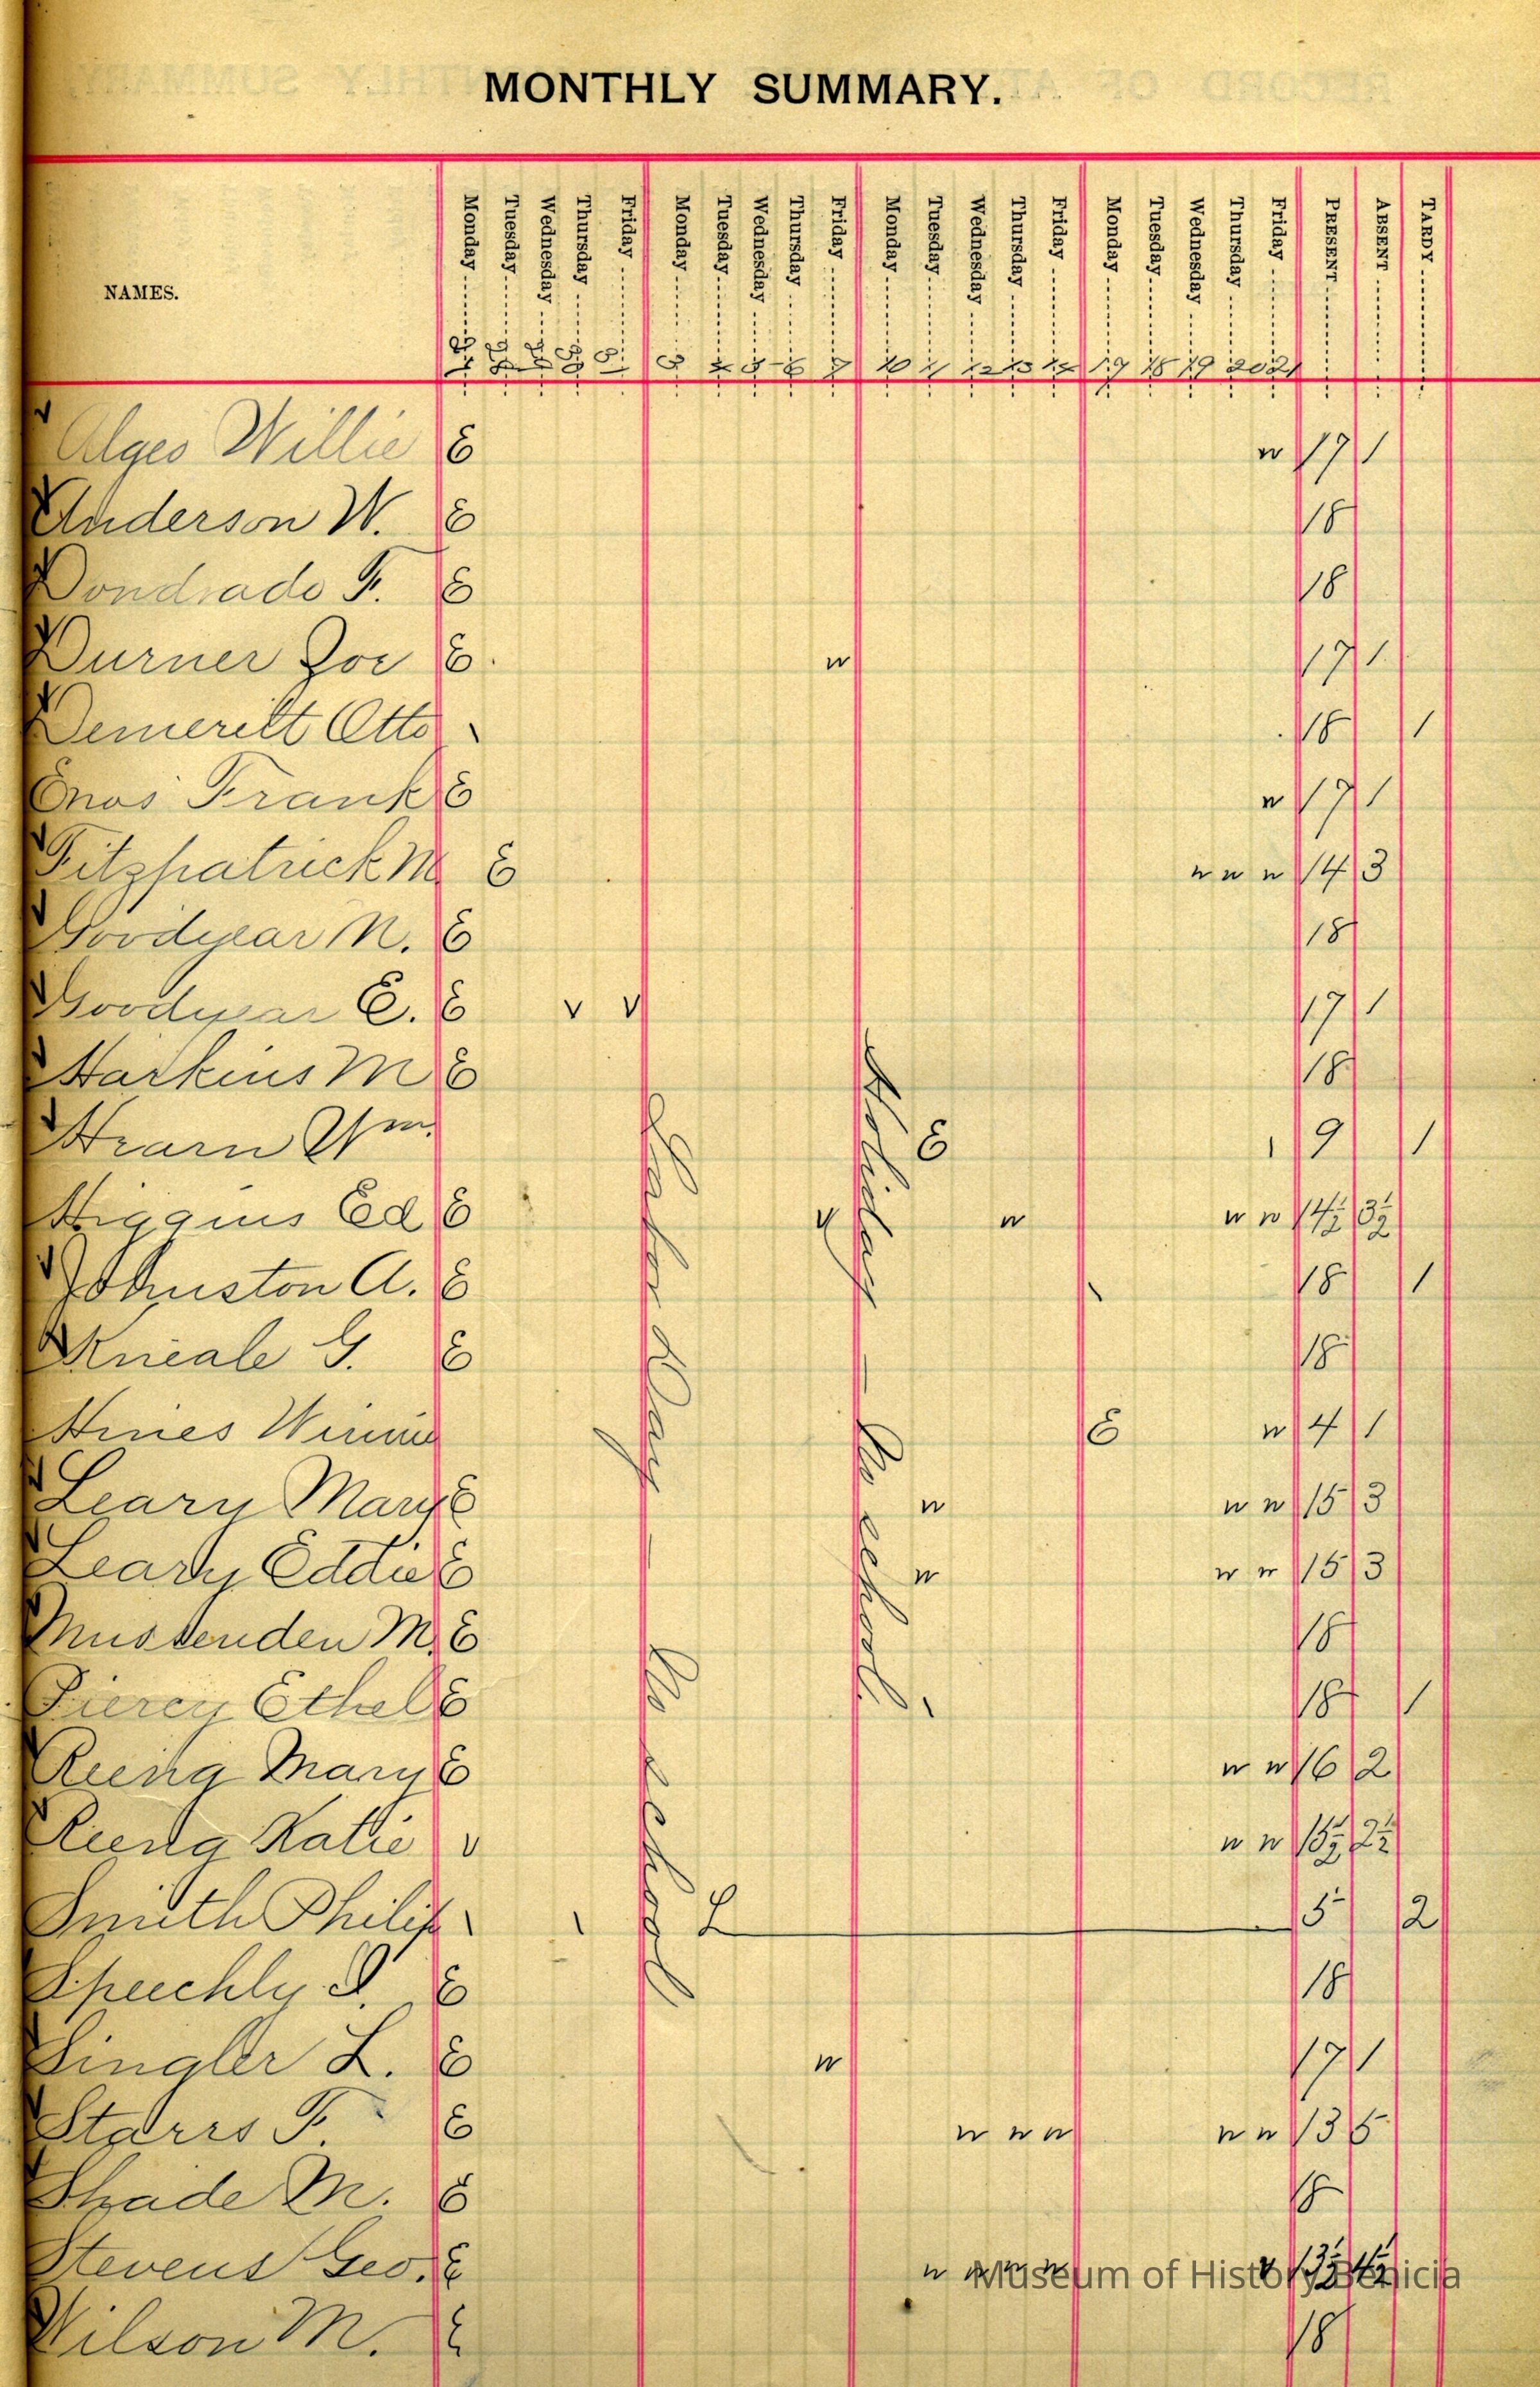 MONTHLY SUMMARY.
NAMES. Monday Tuesday Wednesday Thursday Friday Monday Tuesday Wednesday Thursday Friday Monday Tuesday Wednesday Thursday Friday Monday Tuesday Wednesday Thursday Friday PRESENT ABSENT TARDY
27 28 29 30 31 3 4 5 6 7 10 11 12 13 14 17 18 19 20 21
Algeo Willie E n 17 1
Anderson W. E 18
Dondrado F. E 18
Durner Joe E n 17 1
Demeritt Otto \ 18 1
Enos Frank E n 17 1
Fitzpatrick M E n n n 14 3
Goodyear N. E 18
Goodyear E. E v v 17 1
Harkins M E 18
Hearn Wm. E \ 9 1
Higgins Ed E v n n n 14½ 3½
Johnston A. E \ 18 1
Kneale G. E 18
Hines Winnie E n 4 1
Leary Mary E n n n 15 3
Leary Eddie E n n n 15 3
Mussenden M. E 18
Piercy Ethel E \ 18 1
Rueng Mary E n n 16 2
Rueng Katie v n n 15½ 2½
Smith Philip \ \ L 5 2
Speechly I. E 18
Singler L. E n 17 1
Starrs F. E n n n n n 13 5
Shade M. E 18
Stevens Geo. E n n n n v 13½ 4½
Wilson M. E 18
Labor Day — No school
Holiday — No school.
Museum of History Benicia